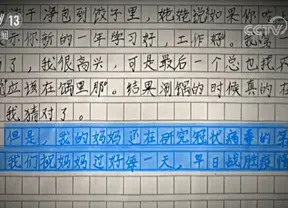 V 13
CCTV
干净包到饺子里,她说如果你吃
示你新的一年学习好,工作好。
了,我很高兴,可是最后一个总也找不
应该在锅里那。结果刷锅的时候真的在
我猜对了。
但是,我的妈妈还在研究冠状病毒的第
我们祝妈妈过好每一天,早日战胜疫情